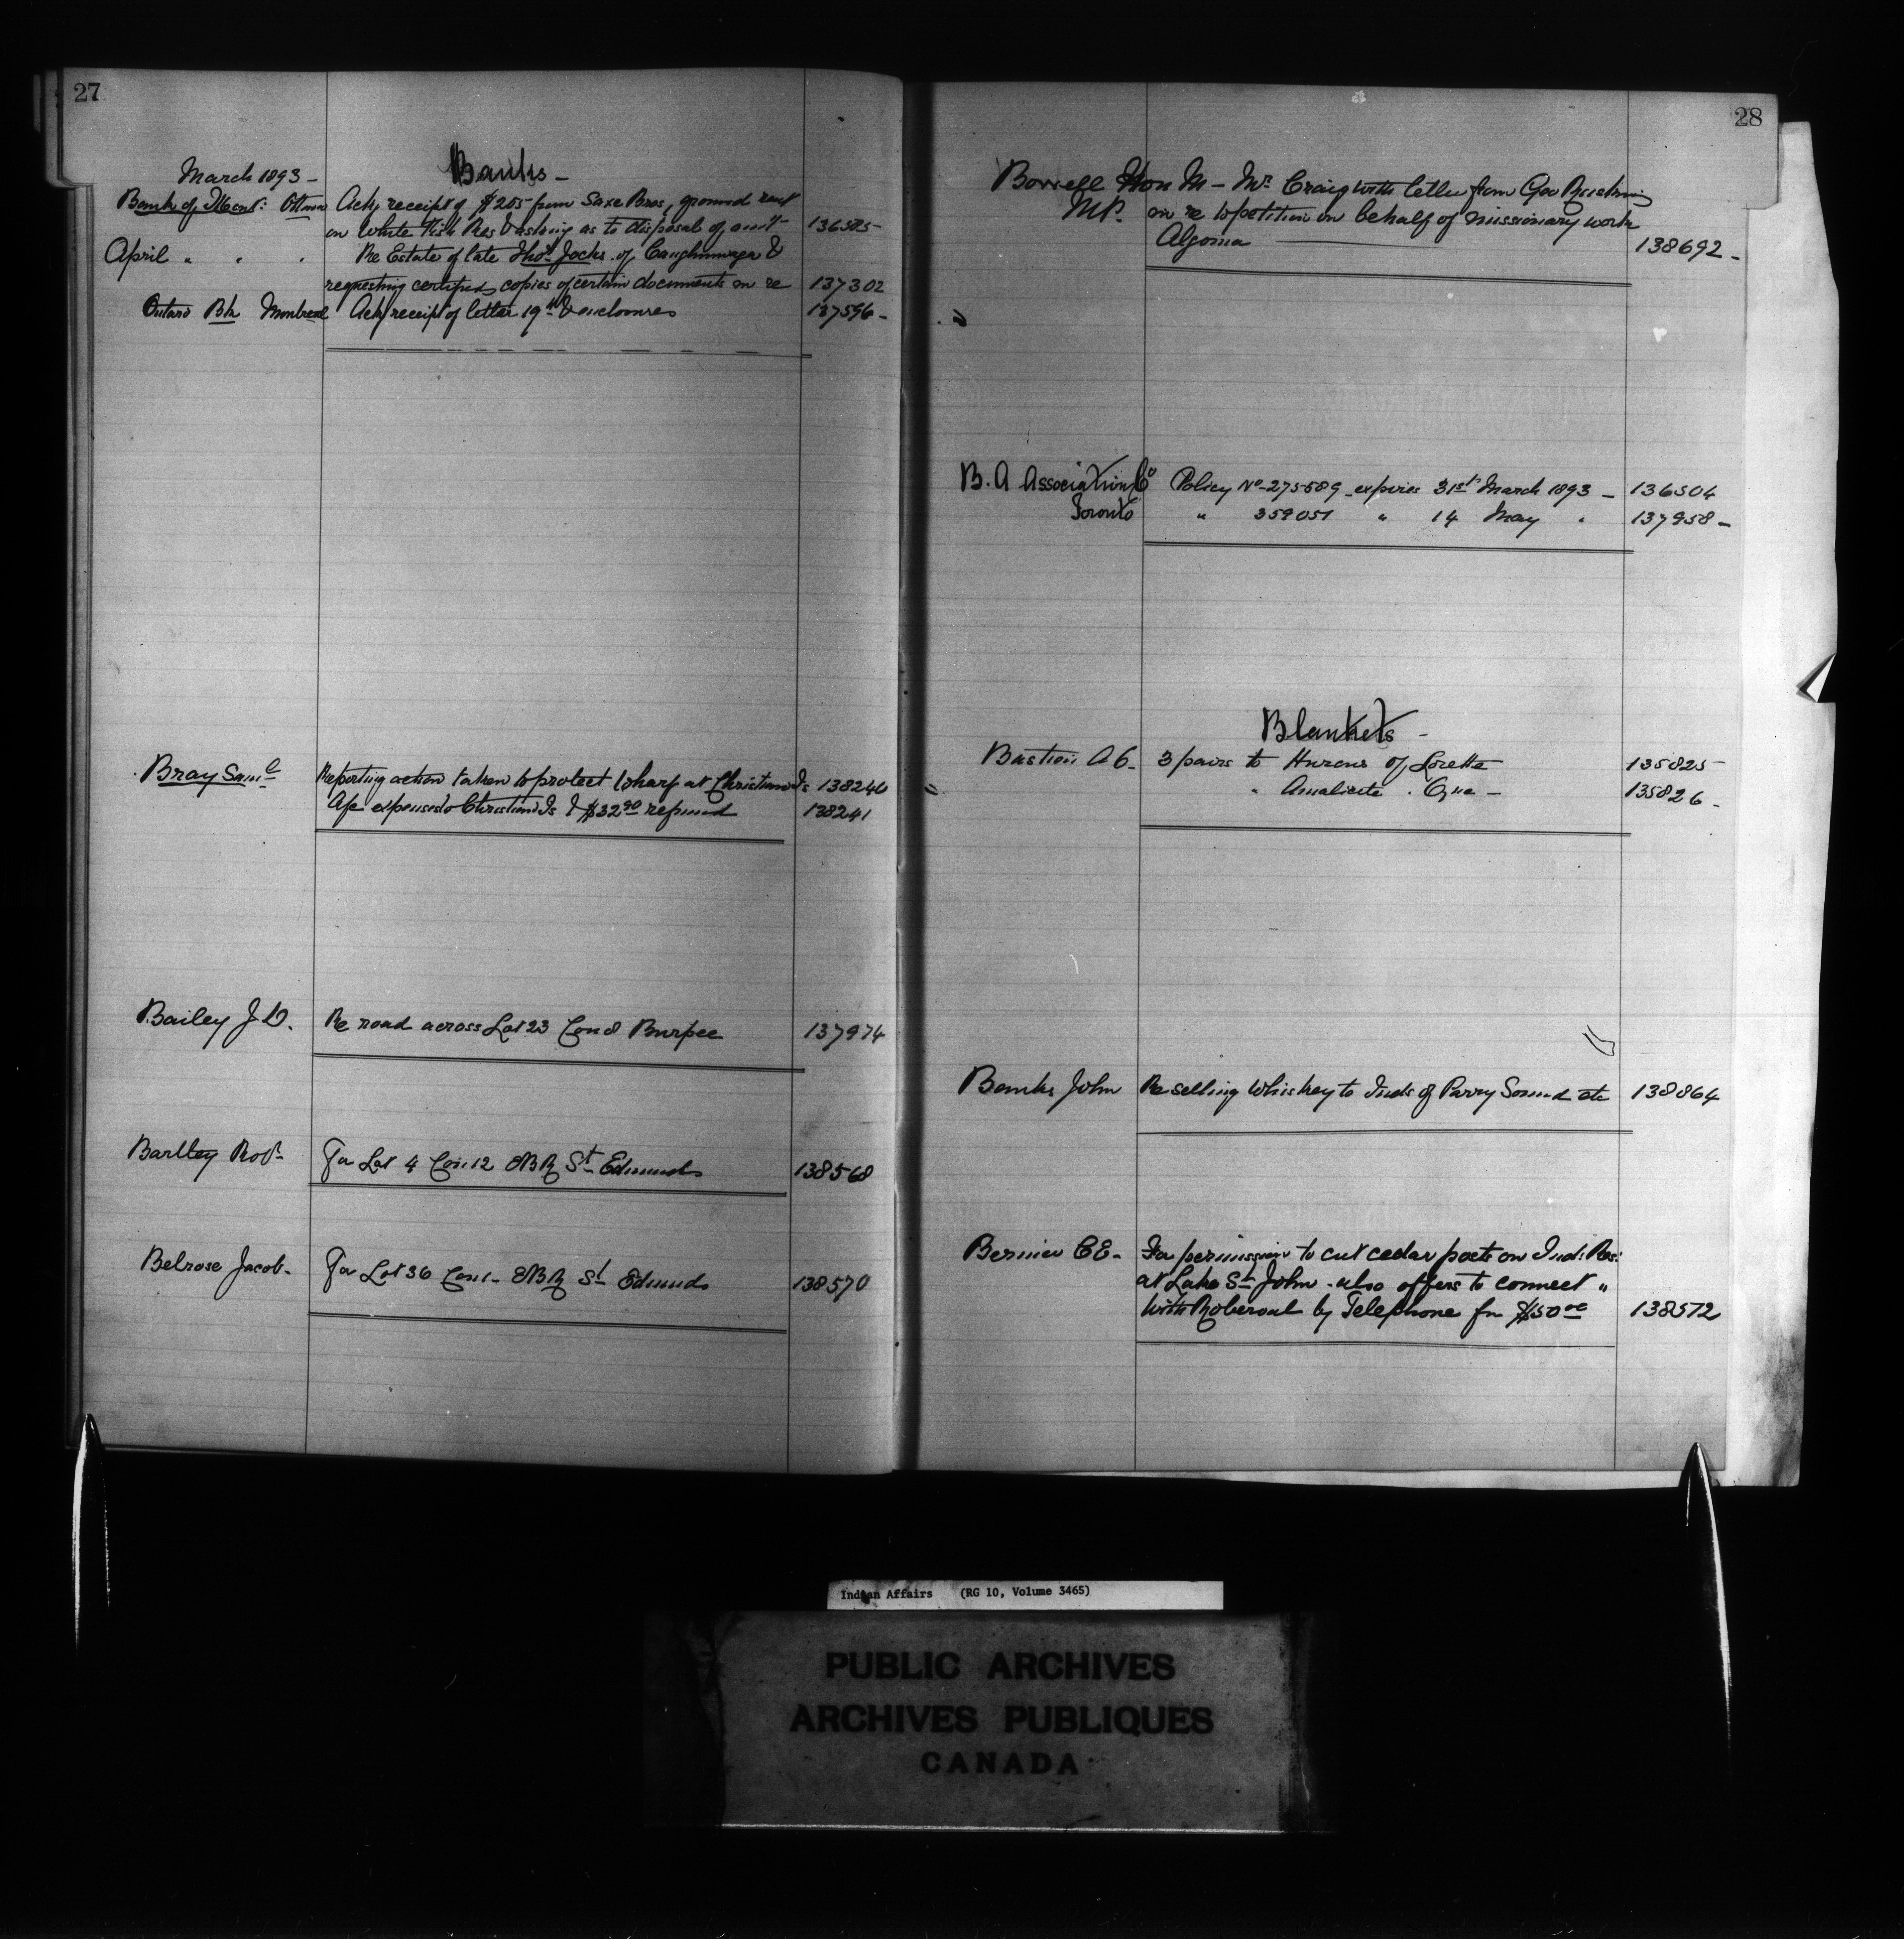 27
Banks -
March 1893 -
Bank of Mont: Ottawa Ack receipt of $205 from Saxe Bros, ground rent
on White Fish Res & asking as to disposal of amt 136585-
April " " " Re Estate of late Thos Jocks of Caughnawaga &
requesting certified copies of certain documents in re 137302
Ontario Bk Montreal Ack receipt of letter 19th & enclosures 137596-
Bray Saml Reporting action taken to protect wharf at Christian Is 138240
A/c expenses to Christian Is & $32.90 refund 138241
Bailey J D. Re road across Lot 23 Con 8 Burpee 137974
Bartley Robt For Lot 4 Con 12 EBR St Edmunds 138568
Belrose Jacob- For Lot 36 Con 1- EBR St Edmunds 138570
28
Bowell Hon M - Mr Craig with letter from Geo
M.P. in re to petition on behalf of missionary work
Algoma 138692-
B. A Association Co Policy No 275589 expires 31st March 1893 - 136504
Toronto " 359051 " 14 May " 137958-
Blankets -
Bastien A C. 3 pairs to Hurons of Lorette 135825
" Amalicite . Que - 135826-
Banks John Re selling Whiskey to Inds of Parry Sound etc 138864
Bernier C E- For permission to cut cedar posts on Ind: Res:
at Lake St John - also offers to connect "
with Roberval by Telephone for $150 00 138572
Indian Affairs (RG 10, Volume 3465)
PUBLIC ARCHIVES
ARCHIVES PUBLIQUES
CANADA